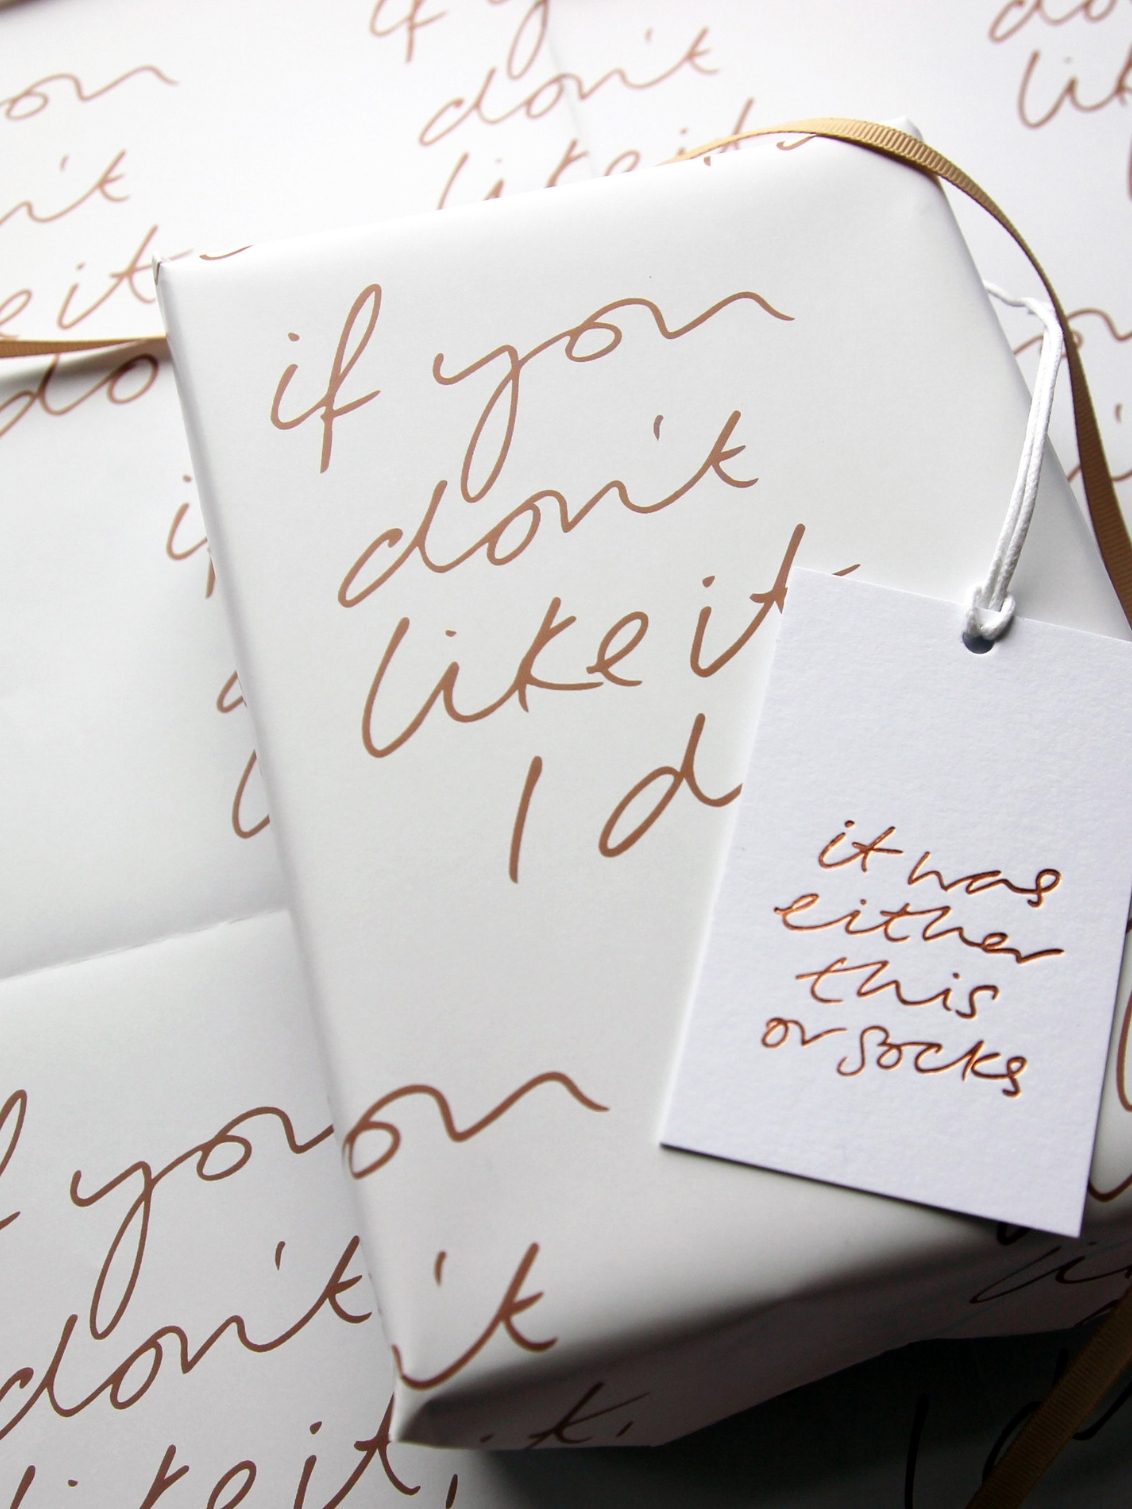 if you
don't
like it
if you
don't
like it
I d
it was
either
this
or socks
if you
don't
like it,